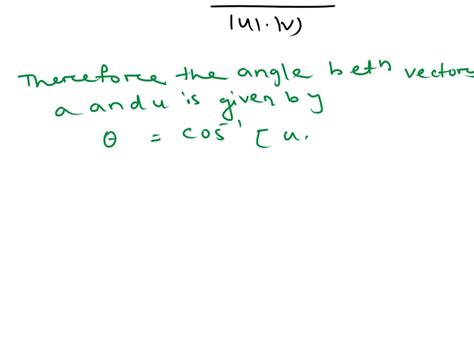 |u|.|v|
Thereforce the angle betn vectors
a and u is given by
θ = cos⁻¹ [ u.